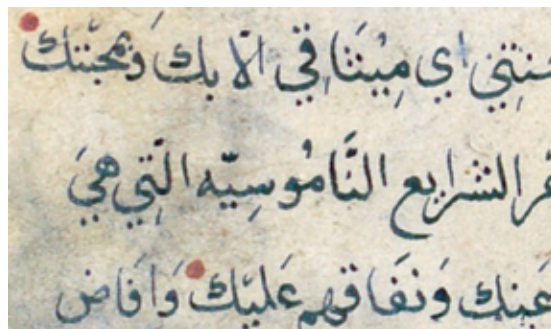 اي مِيثَاقِي الّا بك وَبمحَبّتك
الشرايع النَّامُوسِيّه الّتِي هيَ
عَينك وَنفَاقهم عَليّك وَافَاض